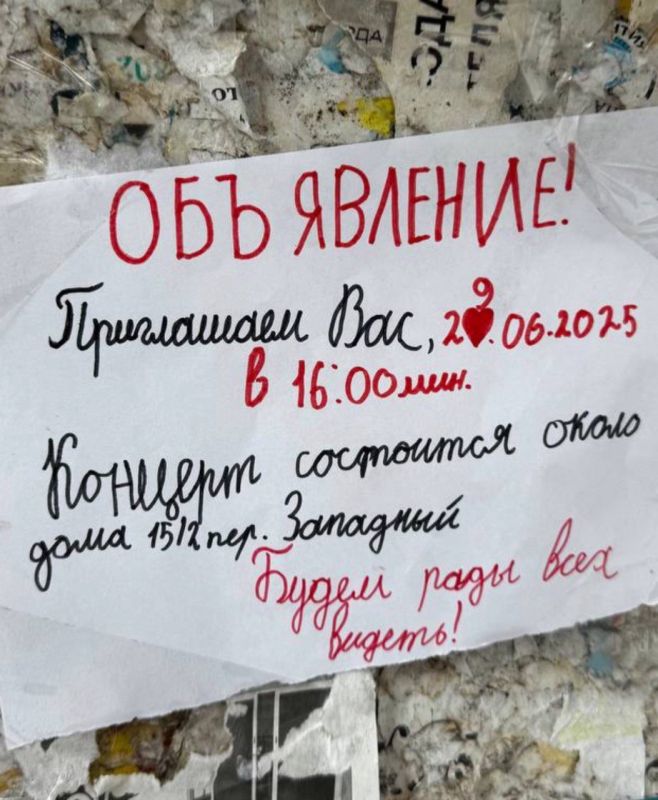 ОДА
ТЕЛЯ
ОТ
ОБЪЯВЛЕНИЕ!
Приглашаем Вас, 29.06.2025
в 16:00мин.
Концерт состоится около
дома 15/2 пер. Западный
Будем рады всех
видеть!